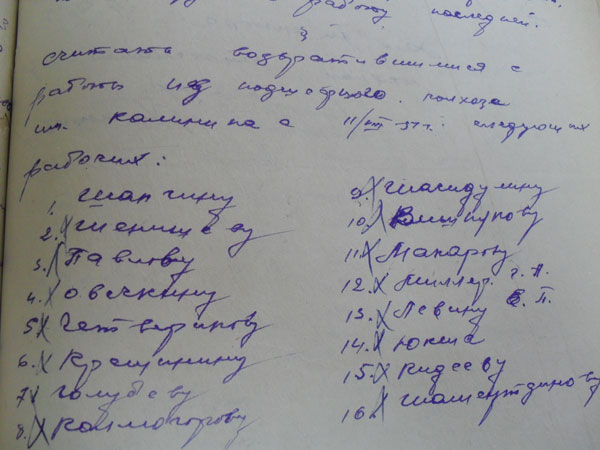 работу последней.
3
считать возвратившимися с
работы из подшефного колхоза
им. Калинина с 11/VIII-57г. следующих
рабочих:
1. Шапчину
2.
3. Павлову
4. Овечкину
5. Четверикову
6. Крашинину
7. Голубеву
8. Колмогорову
9. Шагидулину
10. Вишнукову
11. Макарову
12. Миллер. Г. А.
13. Левину Е. П.
14. Юкша
15. Кидееву
16. Шамсутдинову